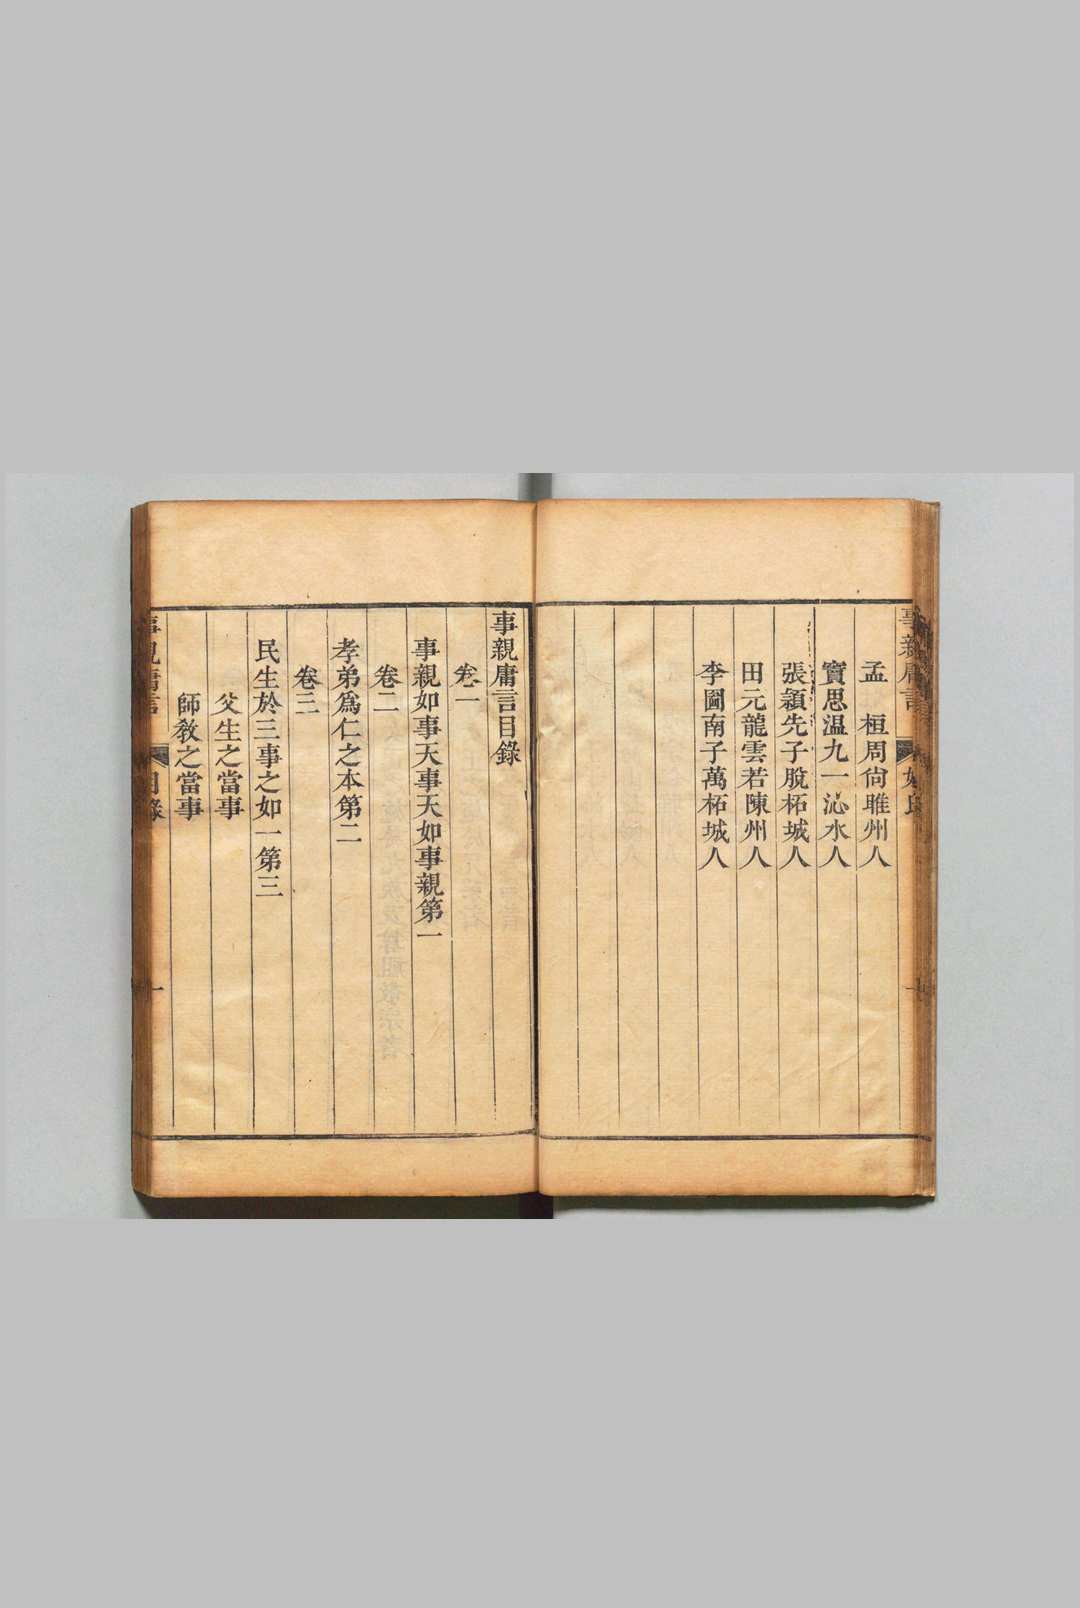 孟　桓周尙睢州人
竇思温九一沁水人
張潁先子脫柘城人
田元龍雲若陳州人
李圖南子萬柘城人
事親庸言
事親庸言目錄
卷一
事親如事天事天如事親第一
卷二
孝弟爲仁之本第二
卷三
民生於三事之如一第三
父生之當事
師敎之當事
事親庸言
目錄
一